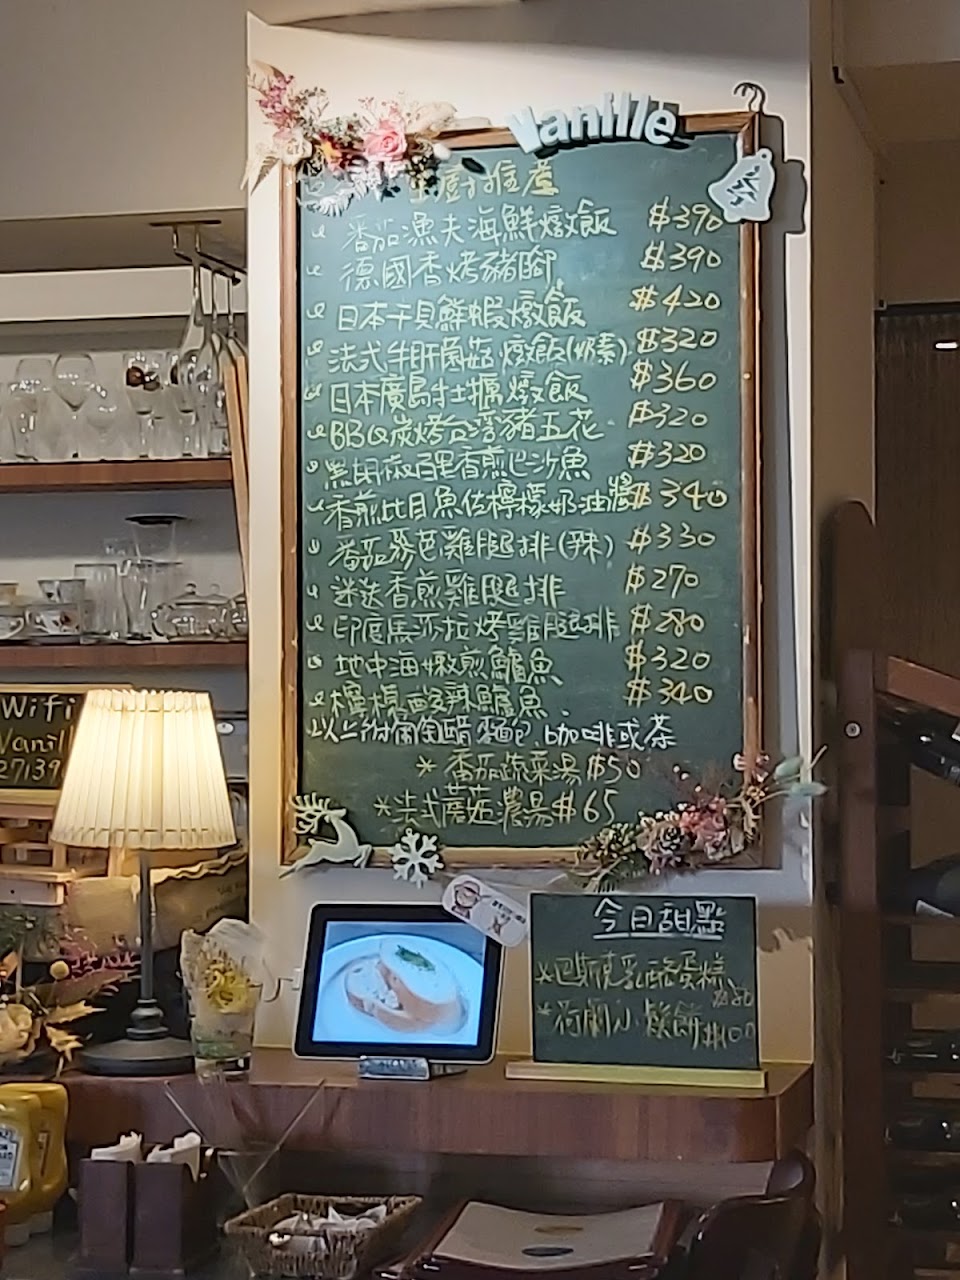 Vanille
主廚推薦
番茄漁夫海鮮燉飯 $390
德國香烤豬腳 $390
日本干貝鮮蝦燉飯 $420
法式牛肝菌菇燉飯(奶素) $320
日本廣島牡蠣燉飯 $360
BBQ炭烤台灣豬五花 $320
黑胡椒香煎巴沙魚 $320
香煎比目魚佐檸檬奶油醬 $340
番茄莎芭雞腿排(辣) $330
迷迭香煎雞腿排 $270
印度馬莎拉烤雞腿排 $280
地中海嫩煎鱸魚 $320
檸檬酸辣鱸魚 $340
以上附油醋麵包 咖啡或茶
*番茄蔬菜湯 $50
*法式蘑菇濃湯 $65
Wifi
Vanill
今日甜點
*巴斯克乳酪蛋糕 $80
*荷蘭小鬆餅 $100